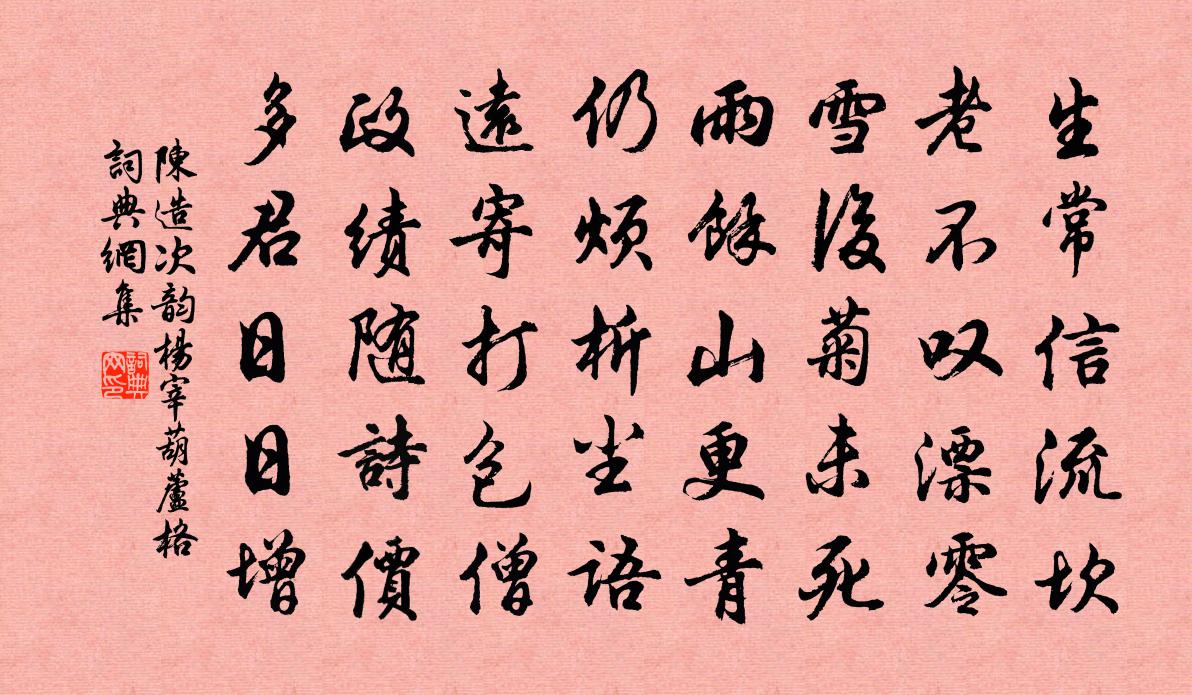 生常信流坎
老不叹漂零
雪後菊未死
雨餘山更青
仍烦析尘語
遠寄打包僧
政绩随詩價
多君日日增
陳造次韵楊宰葫蘆格
詞典網集
詞典网印